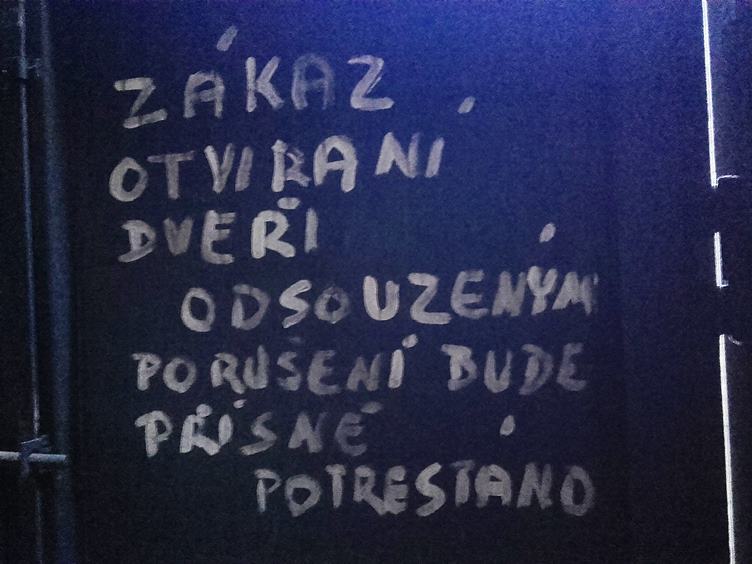 ZÁKAZ
OTVIRANÍ
DVEŘI
ODSOUZENÝM
PORUŠENÍ BUDE
PŘÍSNĚ
POTRESTÁNO